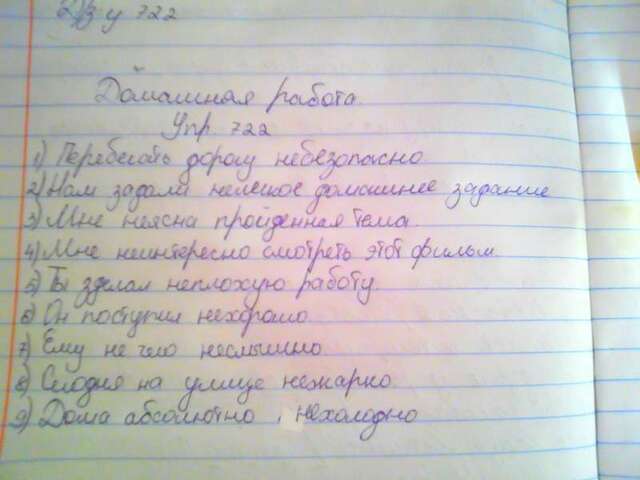 з у 722
Домашная работа.
Упр. 722
1) Перебегать дорогу небезопасно.
2) Нам задали нелегкое домашнее задание
3) Мне неясна пройденная тема.
4) Мне неинтересно смотреть этот фильм.
5) Ты зделал неплохую работу.
6) Он поступил нехорошо.
7) Ему не чего неслышно.
8) Сегодня на улице нежарко.
9) Дома абсолютно нехолодно